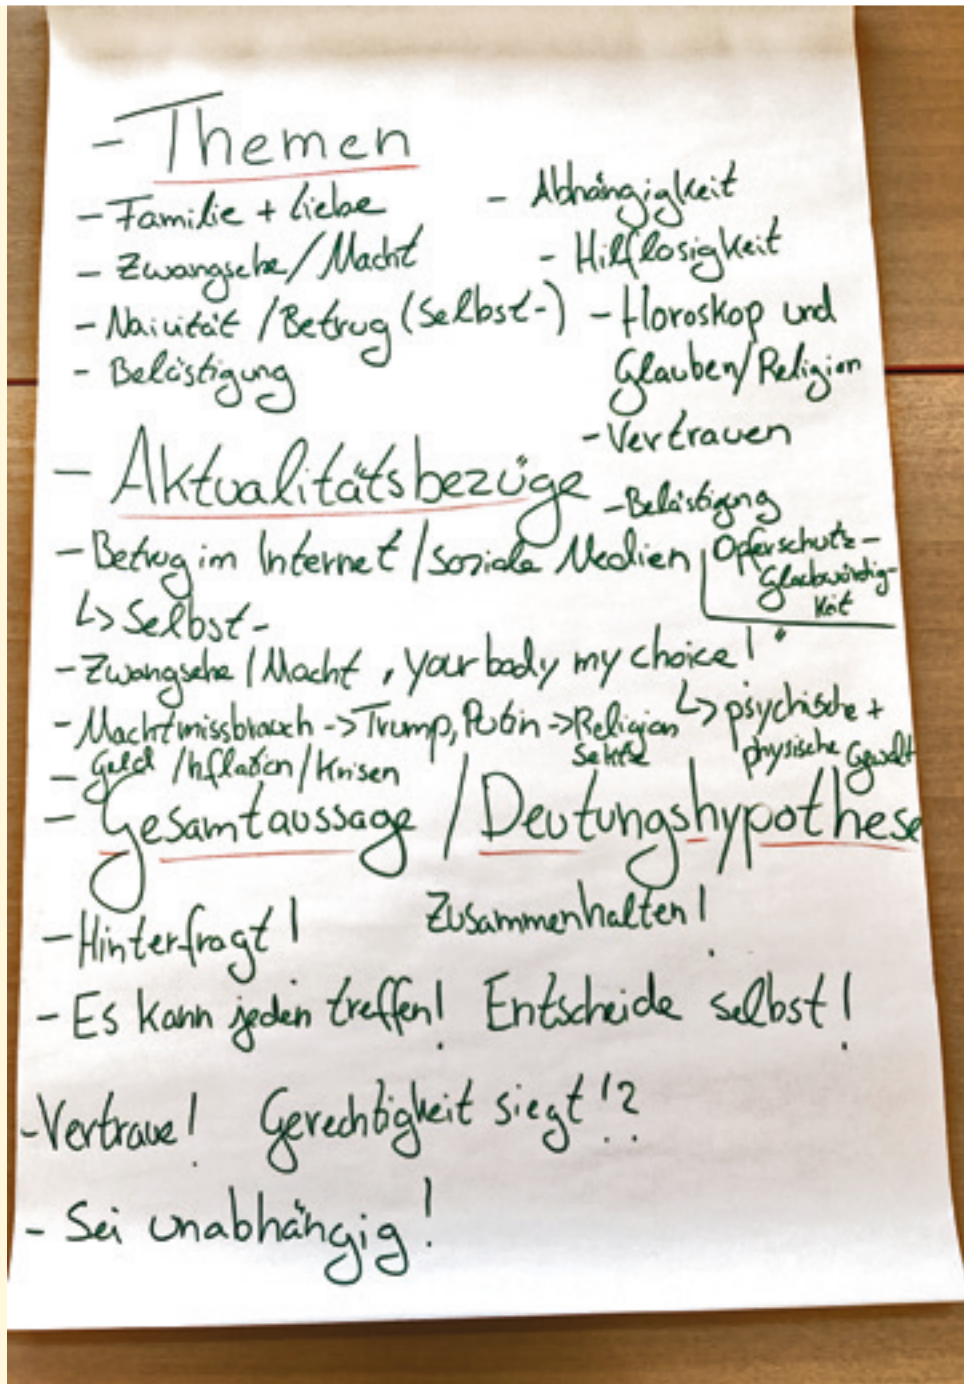 - Themen
- Familie + Liebe
- Zwangsehe/Macht
- Naivität /Betrug (Selbst-)
- Belästigung
- Abhängigkeit
- Hilflosigkeit
- Horoskop und
Glauben/Religion
- Vertrauen
- Belästigung
Opferschutz-
Glaubwürdig-
keit
- Aktualitätsbezüge
- Betrug im Internet /Soziale Medien
↳ Selbst-
- Zwangsehe/Macht „your body my choice!"
↳ psychische +
physische Gewalt
- Machtmissbrauch -> Trump, Putin -> Religion
Sekte
- Geld /Inflation/Krisen
- Gesamtaussage / Deutungshypothese
- Hinterfragt! Zusammenhalten!
- Es kann jeden treffen! Entscheide selbst!
- Vertraue! Gerechtigkeit siegt!?
- Sei unabhängig!